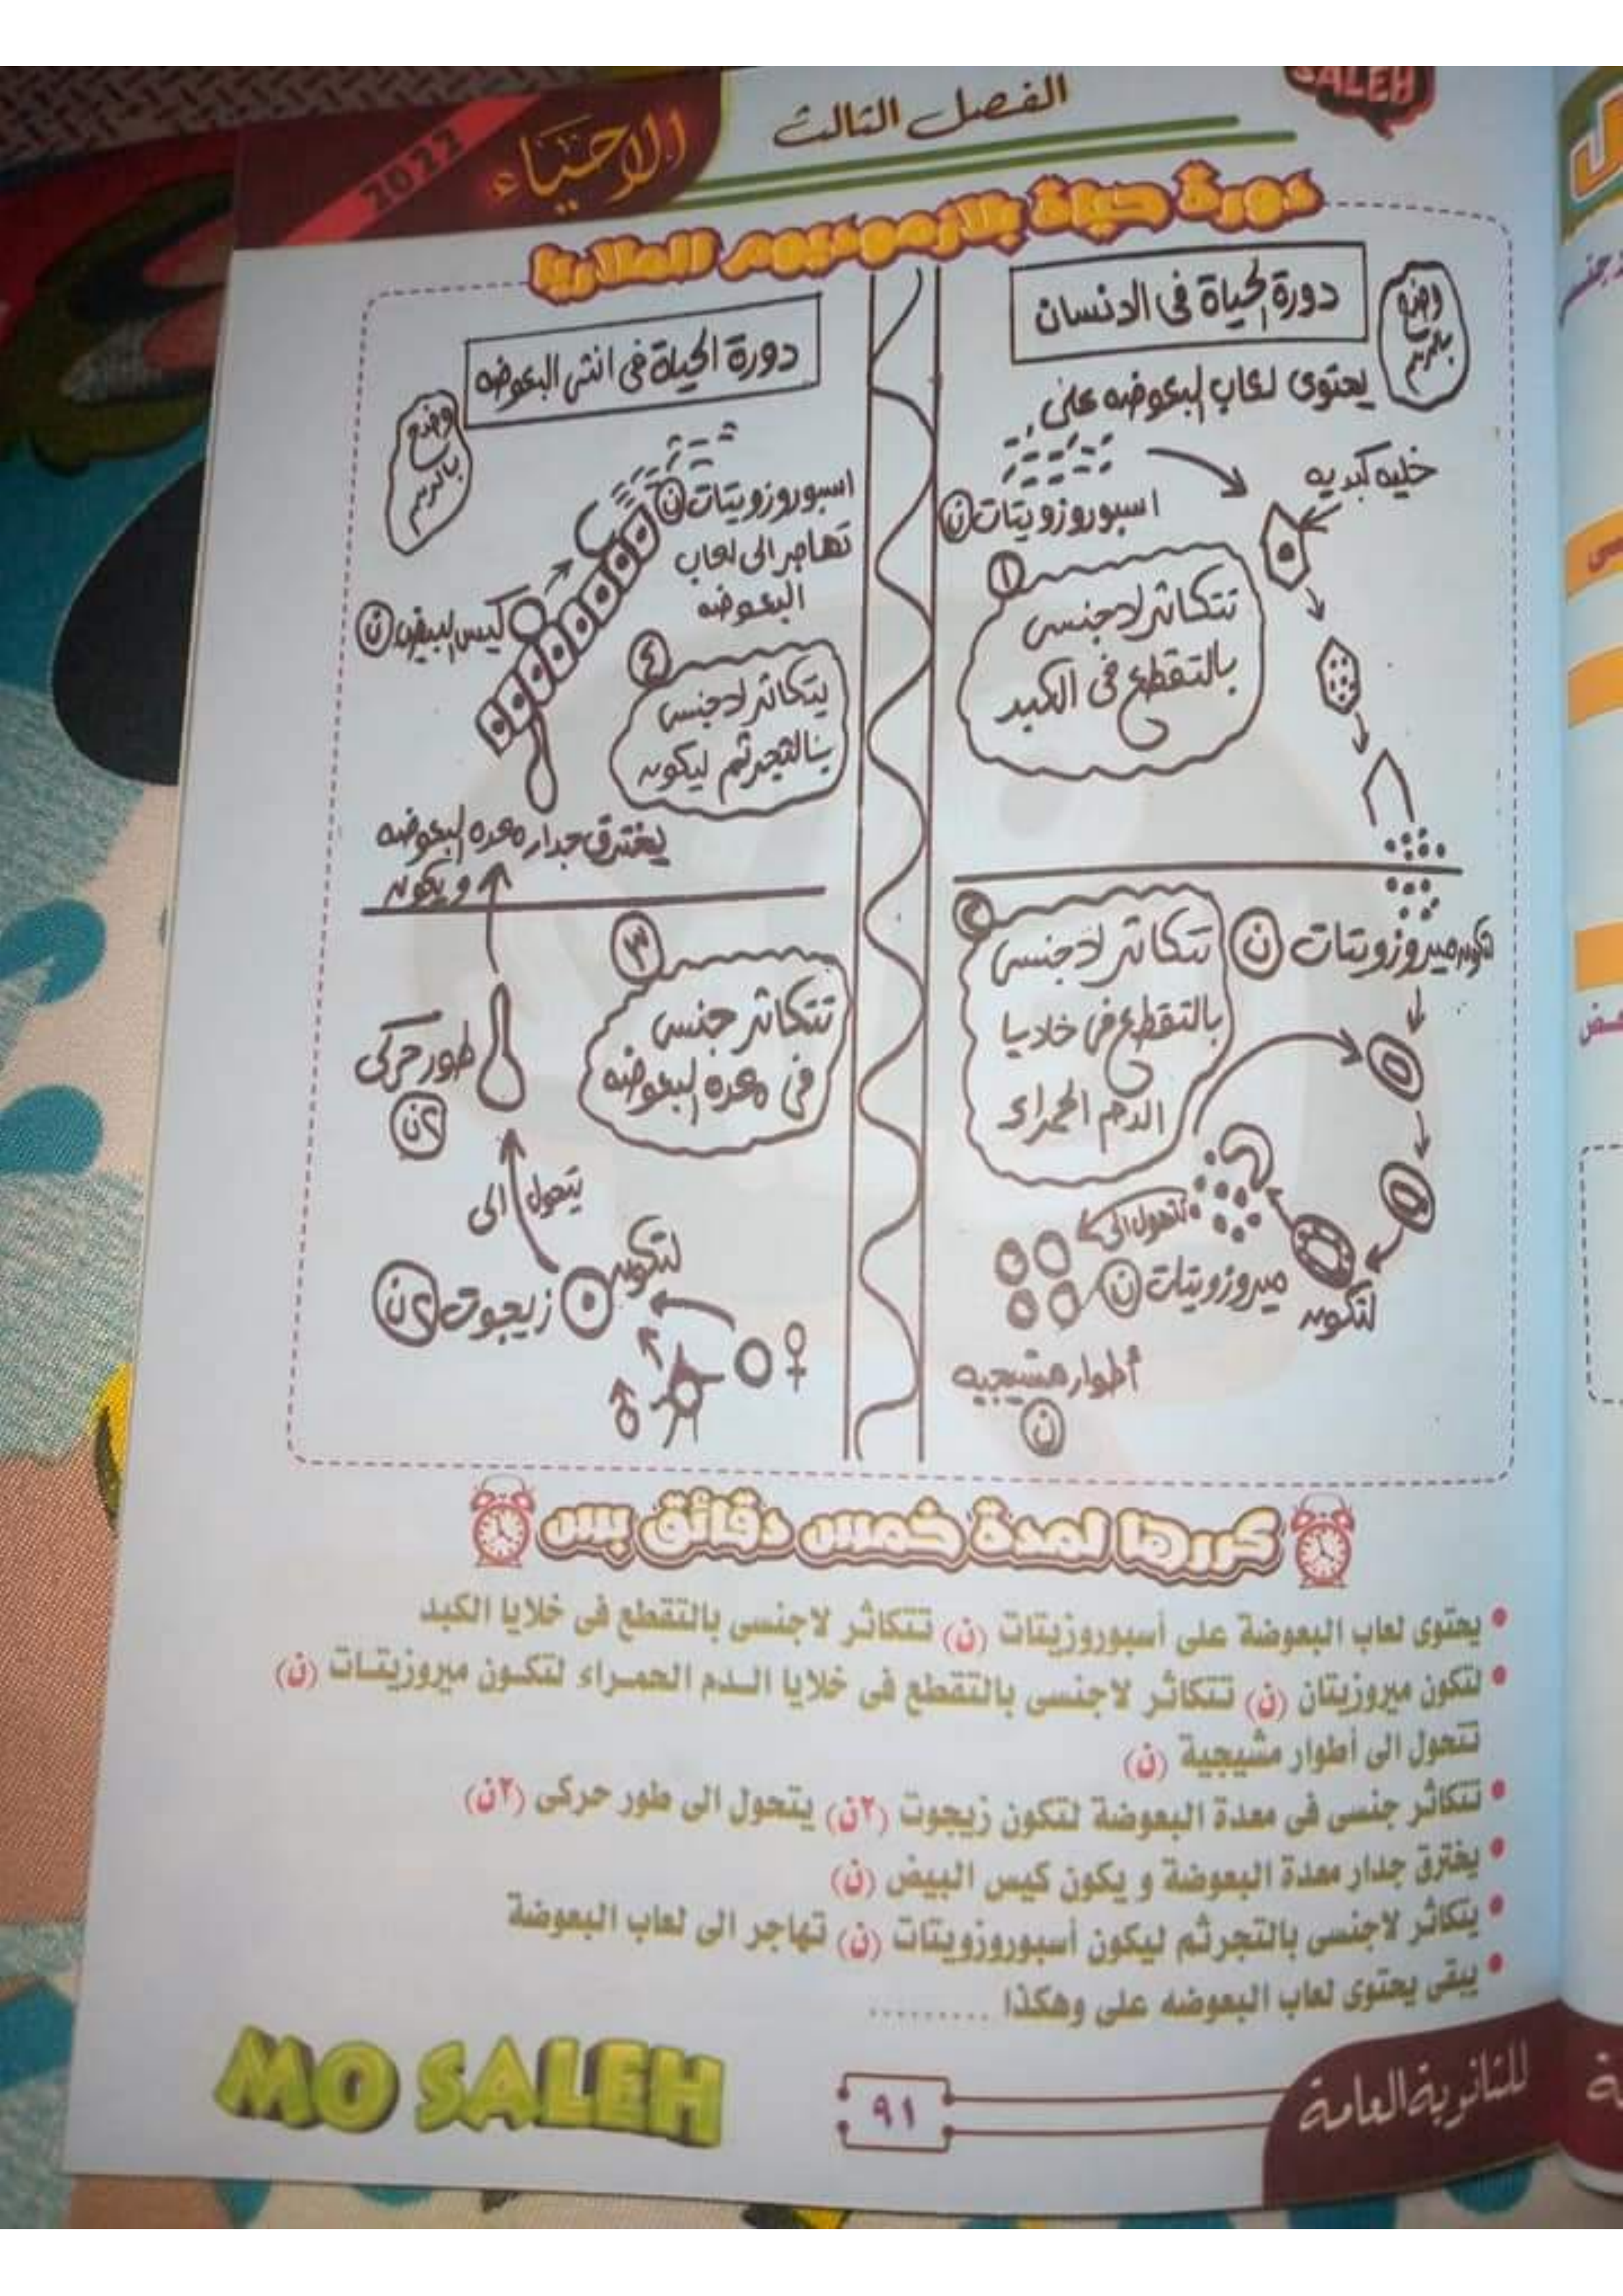 SALEH
الفصل الثالث
الاحياء
2022
دورة حياة بلازموديوم الملاريا
وضح بالرسم
دورة الحياة فى الانسان
يحتوى لعاب البعوضه على
خليه كبديه
اسبوروزويتات ن
١
تتكاثر لاجنسى
بالتقطع فى الكبد
لتكون ميروزويتات ن
٢
تتكاثر لاجنسى
بالتقطع فى خلايا
الدم الحمراء
لتكون
ميروزويتات ن
تتحول الى
أطوار مشيجيه
ن
دورة الحياة فى انثى البعوضه
وضح بالرسم
اسبوروزويتات ن
تهاجر الى لعاب
البعوضه
كيس البيض ن
٤
يتكاثر لاجنسى
بالتجرثم ليكون
يخترق جدار معده البعوضه
و يكون
٣
تتكاثر جنسى
فى معده البعوضه
طور حركى
٢ن
يتحول الى
لتكون
زيجوت ٢ن
♀
♂
كررها لمدة خمس دقائق بس
• يحتوى لعاب البعوضة على أسبوروزيتات (ن) تتكاثر لاجنسى بالتقطع فى خلايا الكبد
• لتكون ميروزيتان (ن) تتكاثر لاجنسى بالتقطع فى خلايا الدم الحمراء لتكون ميروزيتات (ن)
تتحول الى أطوار مشيجية (ن)
• تتكاثر جنسى فى معدة البعوضة لتكون زيجوت (٢ن) يتحول الى طور حركى (٢ن)
• يخترق جدار معدة البعوضة و يكون كيس البيض (ن)
• يتكاثر لاجنسى بالتجرثم ليكون أسبوروزويتات (ن) تهاجر الى لعاب البعوضة
• يبقى يحتوى لعاب البعوضه على وهكذا .........
للثانوية العامة
٩١
MO SALEH